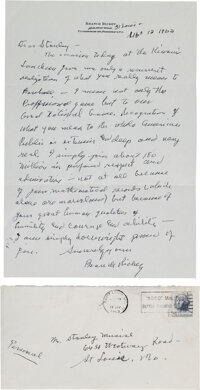 BRANCH RICKEY
St Louis -
Sept 12 1963
Dear Stanley -
The occasion today at the
Luncheon gave me only a
realization of what you really mean to
Baseball - I mean not only the
Professional game but to our
Great National Game. Recognition of
what you mean to the whole American
Public is and deep and very
real. I simply join about 180
million in profound respect and
admiration - not at all because
of your mathematical records (which
alone are marvelous) but because of
your great human qualities of
humility and courage and ability -
I am simply downright proud of
you.
Sincerely yours
Branch Rickey
Personal
Mr Stanley Musial
Westway Road -
St Louis, Mo.